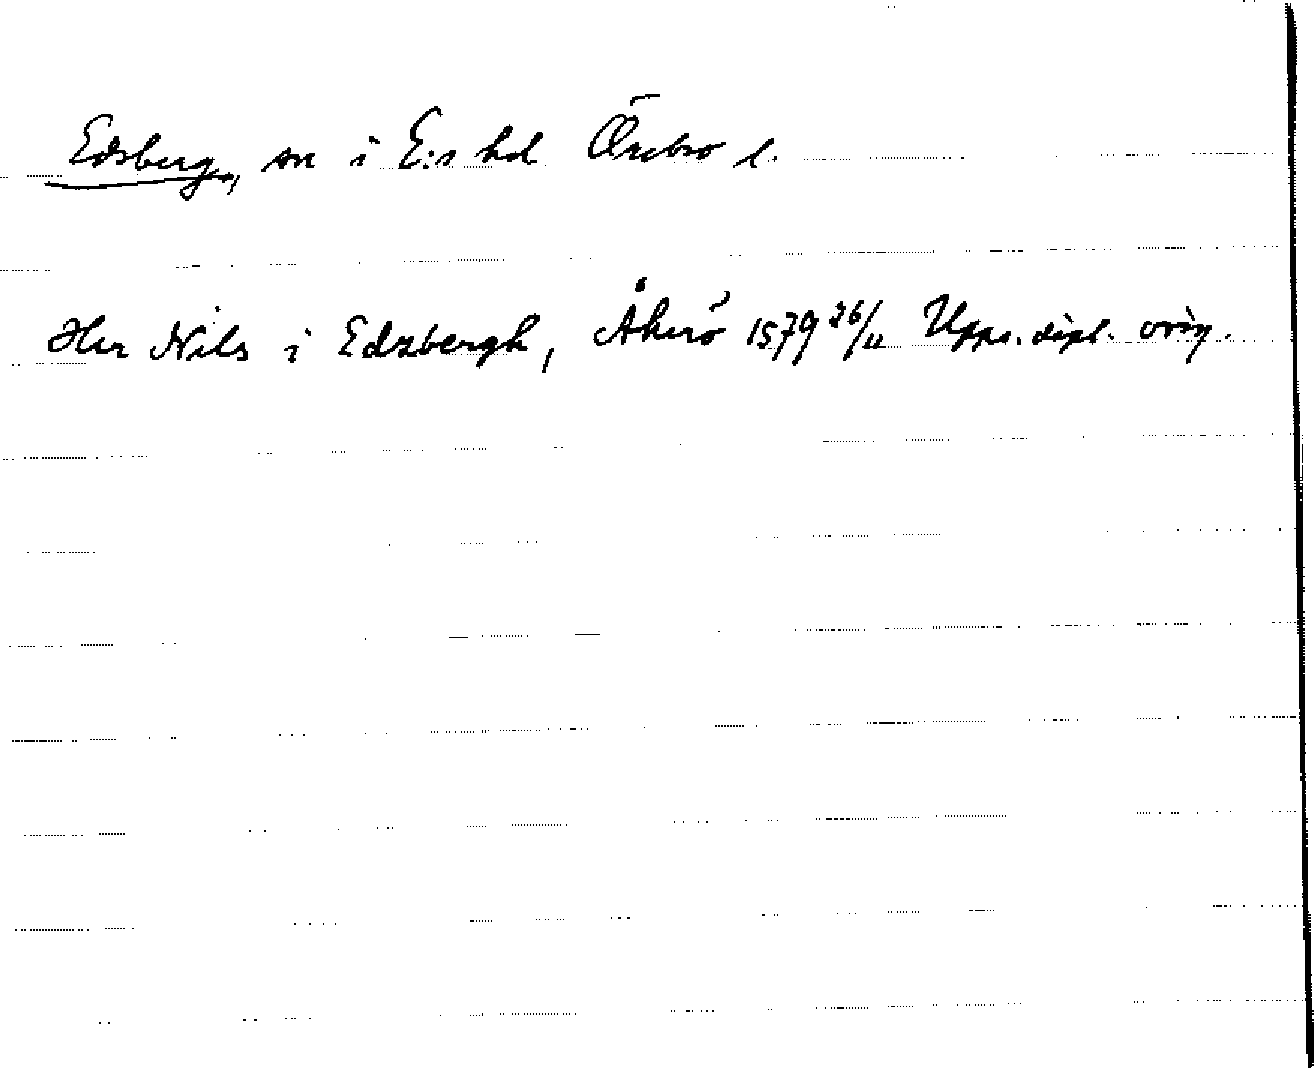 Edsberg, sn i E:s hd Örebro l.
Her Nils i Edzbergh, Åkerö 1579 26/11 Upps. dipl. orig.